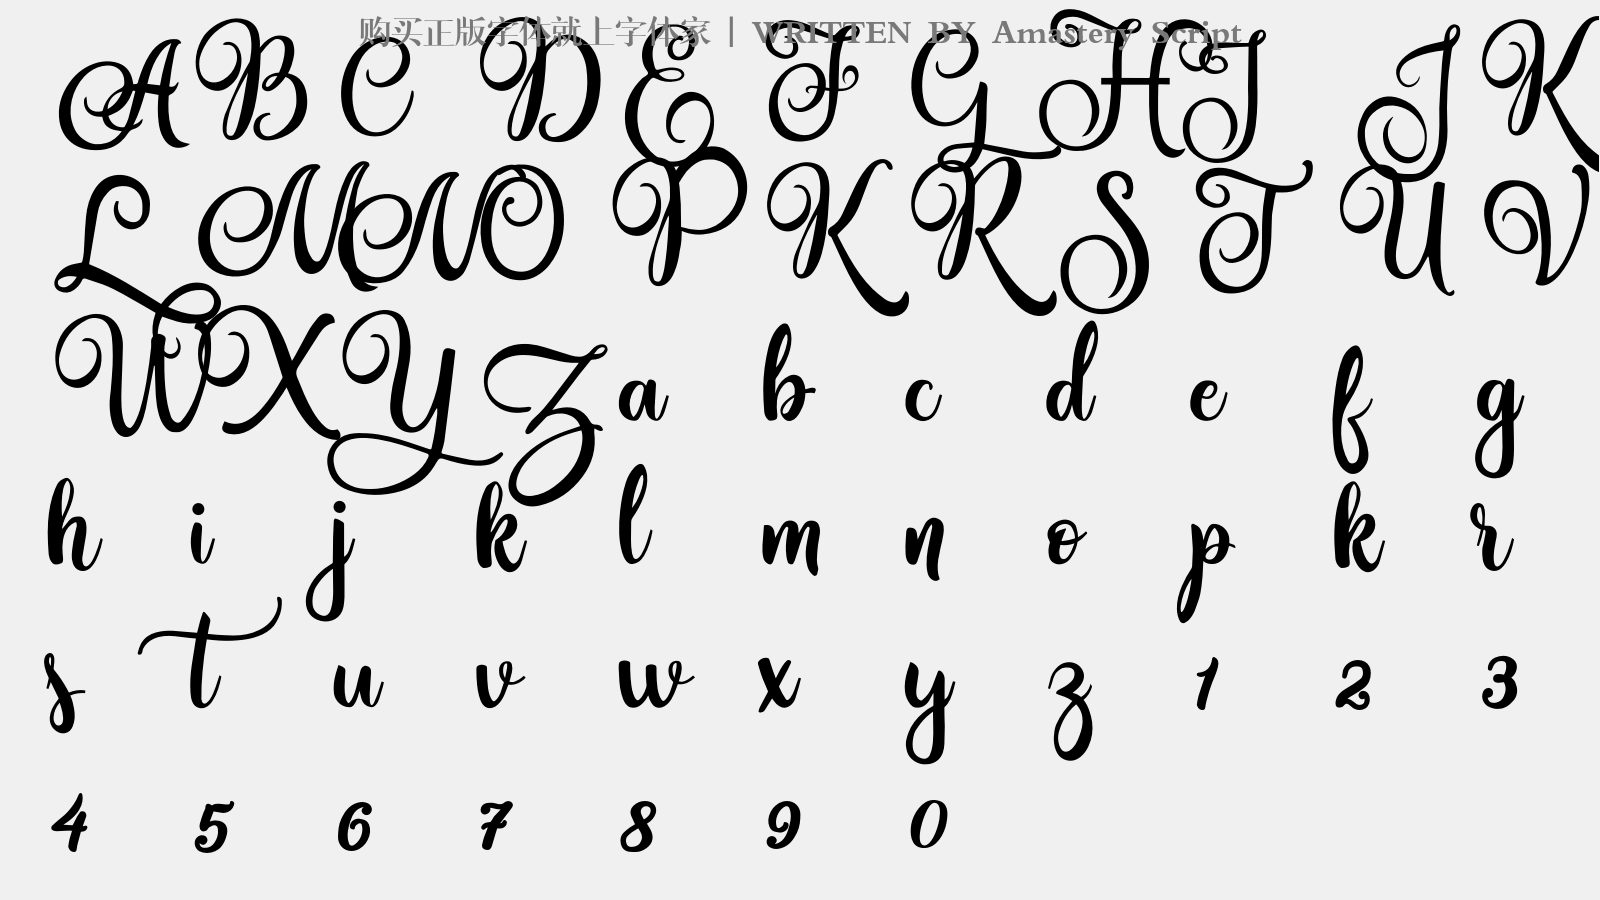 购买正版字体就上字体家 | WRITTEN BY Amastery Script
A B C D E F G H I J K
L N N O P K R S T U V
W X Y Z a b c d e f g
h i j k l m n o p k r
s t u v w x y z 1 2 3
4 5 6 7 8 9 0